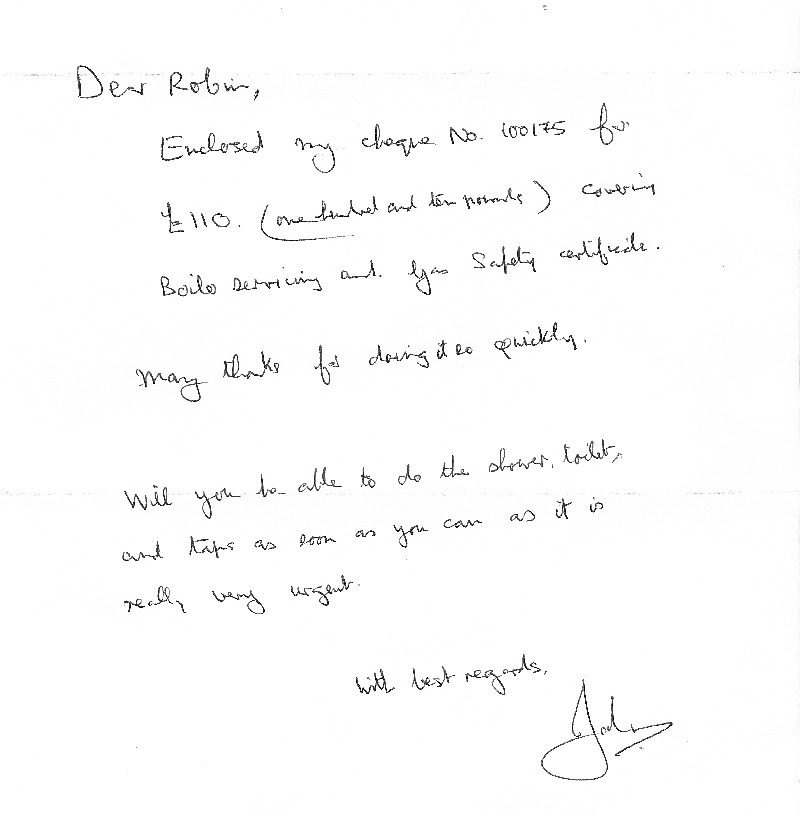 Dear Robin,
Enclosed my cheque No. 100175 for
£110. (one hundred and ten pounds) covering
Boiler servicing and Gas Safety certificate.
Many thanks for doing it so quickly.
Will you be able to do the shower, toilet,
and taps as soon as you can as it is
really very urgent.
With best regards,